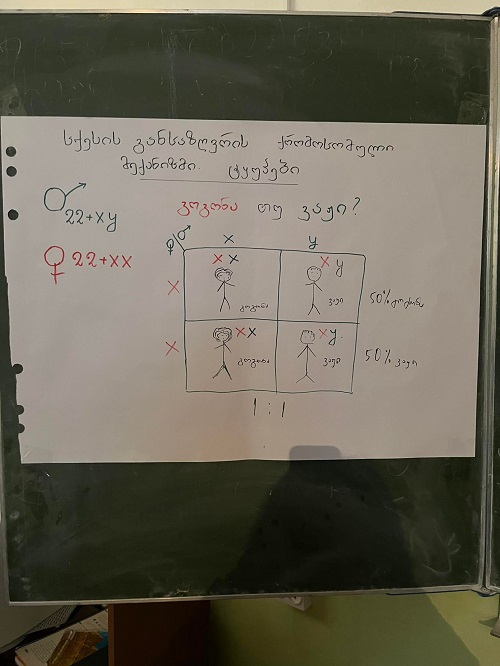 სქესის განსაზღვრის ქრომოსომული
მექანიზმი. ტყუპები
♂ 22+xy
გოგონა თუ ვაჟი?
♀ 22+xx
♀ ♂ x y
x xx გოგონა xy ვაჟი 50% გოგონა
x xx გოგონა xy. ვაჟი 50% ვაჟი
1 : 1